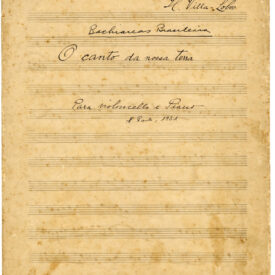 H. Villa-Lobos
Bachianas Brasileiras
O canto da nossa terra
Para violoncello e Piano
S. Paulo, 1931